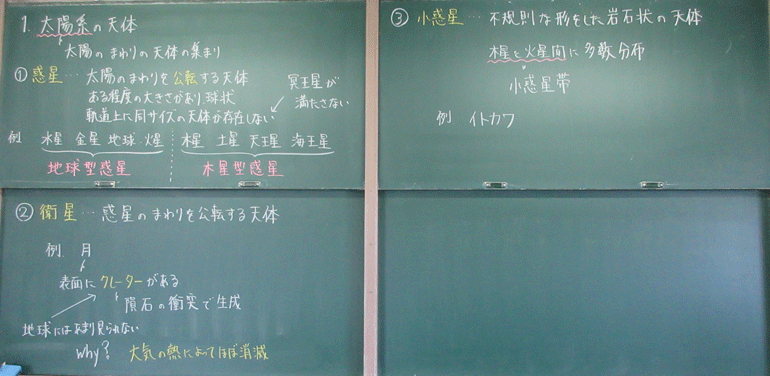 1. 太陽系の天体
太陽のまわりの天体の集まり
① 惑星… 太陽のまわりを公転する天体
ある程度の大きさがあり球状
軌道上に同サイズの天体が存在しない
冥王星が
満たさない
例 水星 金星 地球 火星 木星 土星 天王星 海王星
地球型惑星 木星型惑星
② 衛星… 惑星のまわりを公転する天体
例. 月
表面にクレーターがある
隕石の衝突で生成
地球にはあまり見られない
why? 大気の熱によってほぼ消滅
③ 小惑星… 不規則な形をした岩石状の天体
木星と火星間に多数分布
小惑星帯
例 イトカワ